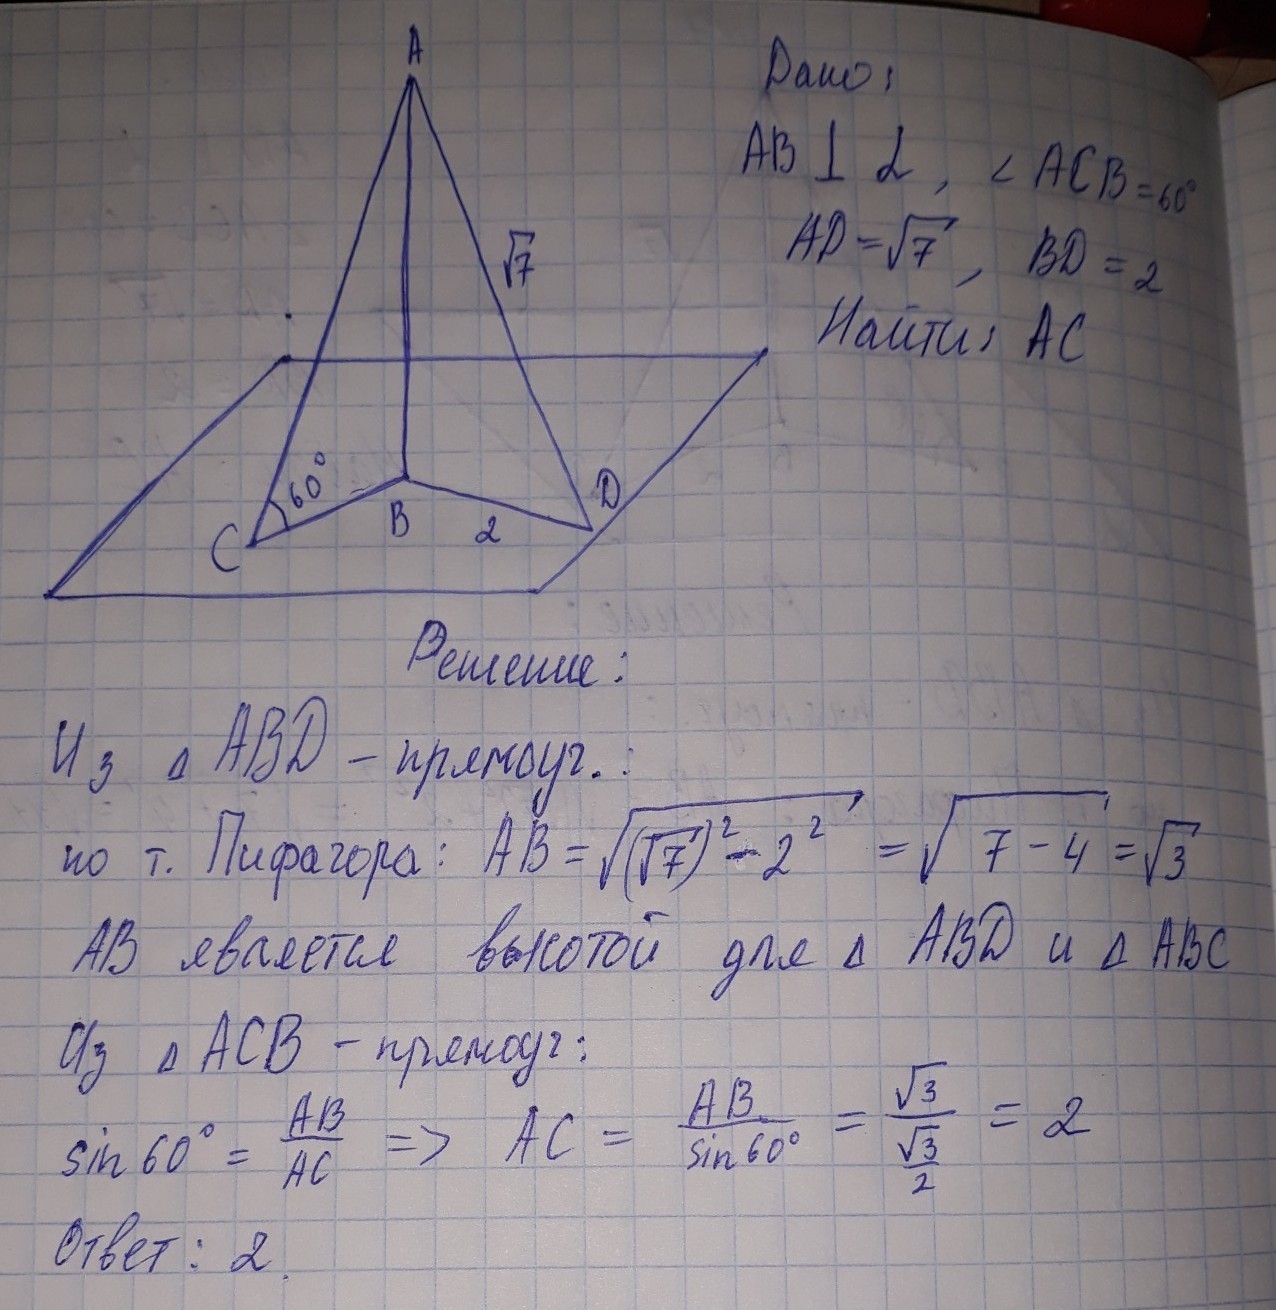 A
Дано:
AB ⊥ α, ∠ ACB = 60°
AD = √7, BD = 2
Найти: AC
√7
60°
C
B
2
D
Решение:
Из △ ABD - прямоуг.:
по т. Пифагора: AB = √((√7)² - 2²) = √(7 - 4) = √3
AB является высотой для △ ABD и △ ABC
Из △ ACB - прямоуг:
sin 60° = AB/AC => AC = AB/sin 60° = √3/(√3/2) = 2
Ответ: 2.